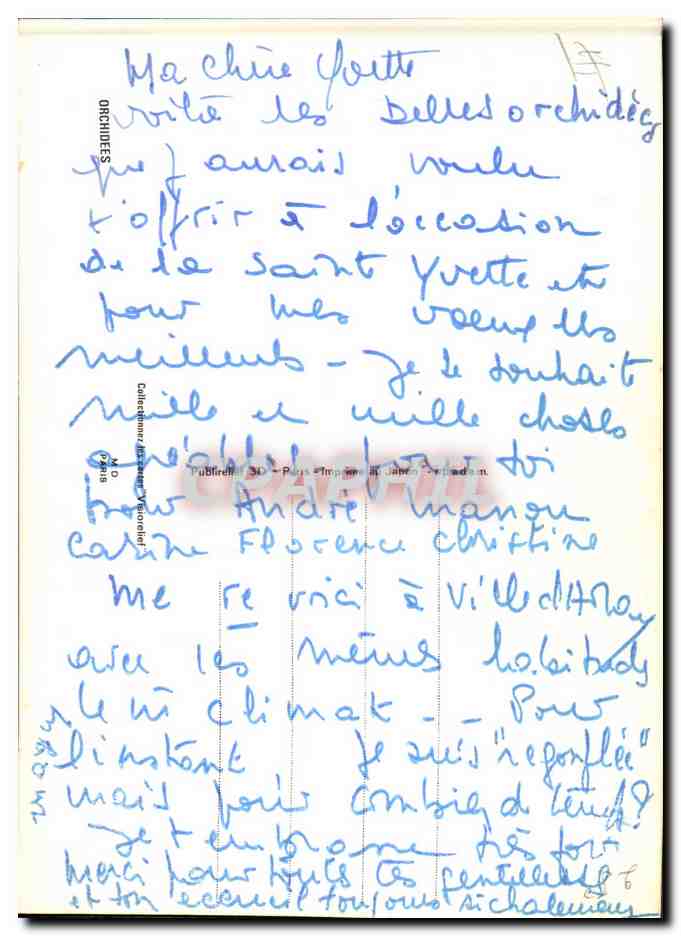 Ma chère Yvette
voilà les belles orchidées
que j'aurais voulu
t'offrir à l'occasion
de la Saint Yvette et
pour mes voeux les
meilleurs - Je te souhaite
mille et mille choses
pour toi
pour André Manou
Carine Florence Christine
Me re voici à Ville d'Avray
avec les mêmes habitudes
le m climat - - Pour
l'instant Je suis "regonflée"
mais pour combien de temps?
Je t'embrasse très fort
Merci pour toutes tes gentillesses
et ton accueil toujours si chaleureux
ORCHIDEES
Collectionnez les cartes "Visiorelief"
M D
PARIS
Publirelief 3D - Paris - Imprimé au Japon
CPAPHIL